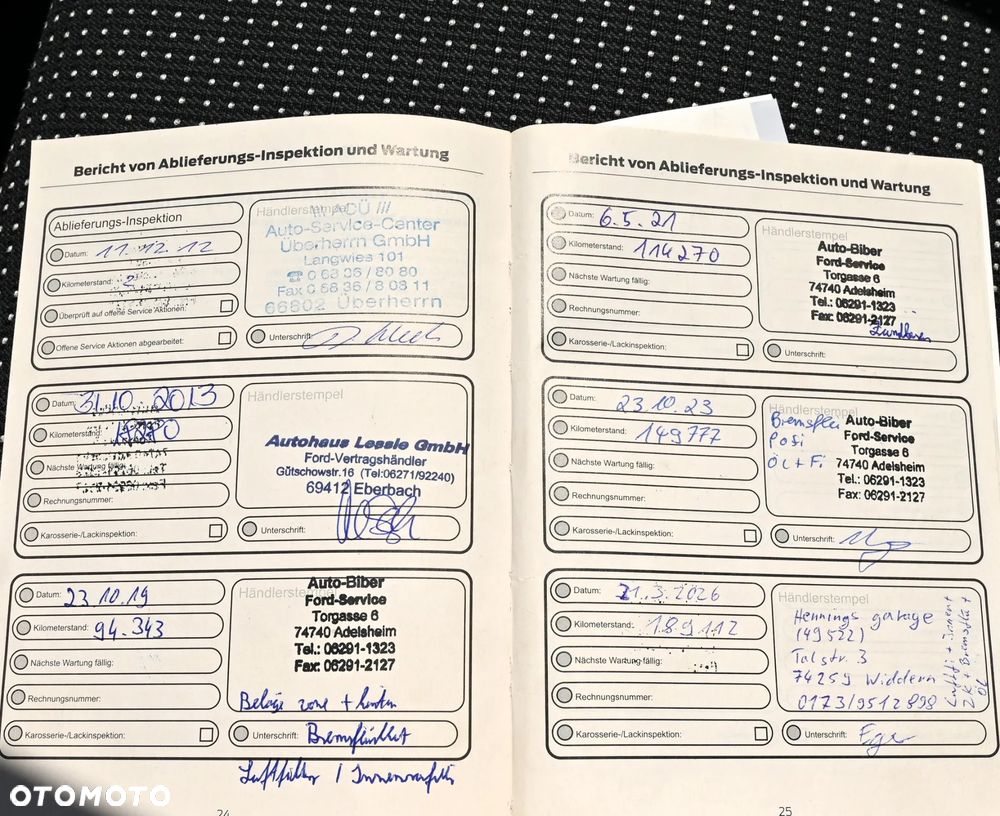 Bericht von Ablieferungs-Inspektion und Wartung
Ablieferungs-Inspektion
Datum: 11.12.12
Kilometerstand:
Überprüft auf offene Service Aktionen:
Offene Service Aktionen abgearbeitet:
Händlerstempel
/// ACÜ ///
Auto-Service-Center
Überherrn GmbH
Langwies 101
☎ 0 68 36 / 80 80
Fax 0 68 36 / 8 08 11
66802 Überherrn
Unterschrift:
Datum: 31.10.2013
Kilometerstand:
Nächste Wartung fällig:
Rechnungsnummer:
Karosserie-/Lackinspektion:
Händlerstempel
Autohaus Lessle GmbH
Ford-Vertragshändler
Gütschowstr.16 (Tel:06271/92240)
69412 Eberbach
Unterschrift:
Datum: 23.10.19
Kilometerstand: 94.343
Nächste Wartung fällig:
Rechnungsnummer:
Karosserie-/Lackinspektion:
Händlerstempel
Auto-Biber
Ford-Service
Torgasse 6
74740 Adelsheim
Tel.: 06291-1323
Fax: 06291-2127
Beläge vorne + hinten
Unterschrift:
Luftfilter /
24
Bericht von Ablieferungs-Inspektion und Wartung
Datum: 6.5.21
Kilometerstand: 114270
Nächste Wartung fällig:
Rechnungsnummer:
Karosserie-/Lackinspektion:
Händlerstempel
Auto-Biber
Ford-Service
Torgasse 6
74740 Adelsheim
Tel.: 06291-1323
Fax: 06291-2127
Unterschrift:
Datum: 23.10.23
Kilometerstand: 149777
Nächste Wartung fällig:
Rechnungsnummer:
Karosserie-/Lackinspektion:
Händlerstempel
Bremsflü
Pofi
Öl + Fi
Auto-Biber
Ford-Service
Torgasse 6
74740 Adelsheim
Tel.: 06291-1323
Fax: 06291-2127
Unterschrift:
Datum: 21.3.2026
Kilometerstand: 189112
Nächste Wartung fällig:
Rechnungsnummer:
Karosserie-/Lackinspektion:
Händlerstempel
Hennings garage
(49522)
Talstr. 3
74259 Widdern
0173/9512898
Luftfi + Innenf +
ZK + Bremsflü +
Öl
Unterschrift:
25
OTOMOTO